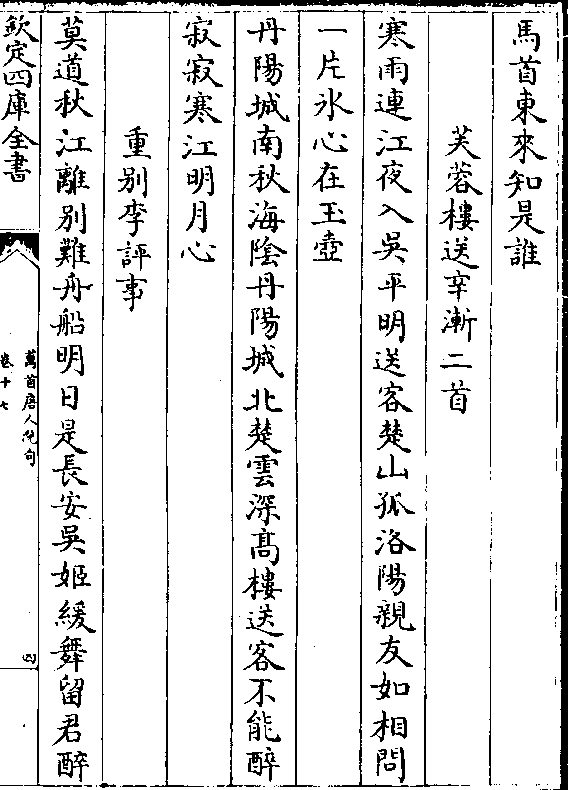 馬首東來知是誰
芙蓉樓送辛漸二首
寒雨連江夜入吳平明送客楚山孤洛陽親友如相問
一片氷心在玉壺
丹陽城南秋海陰丹陽城北楚雲深髙樓送客不能醉
寂寂寒江明月心
重别李評事
莫道秋江離别難舟船明日是長安吳姬緩舞留君醉
欽定四庫全書
萬首唐人絶句
卷十七
四